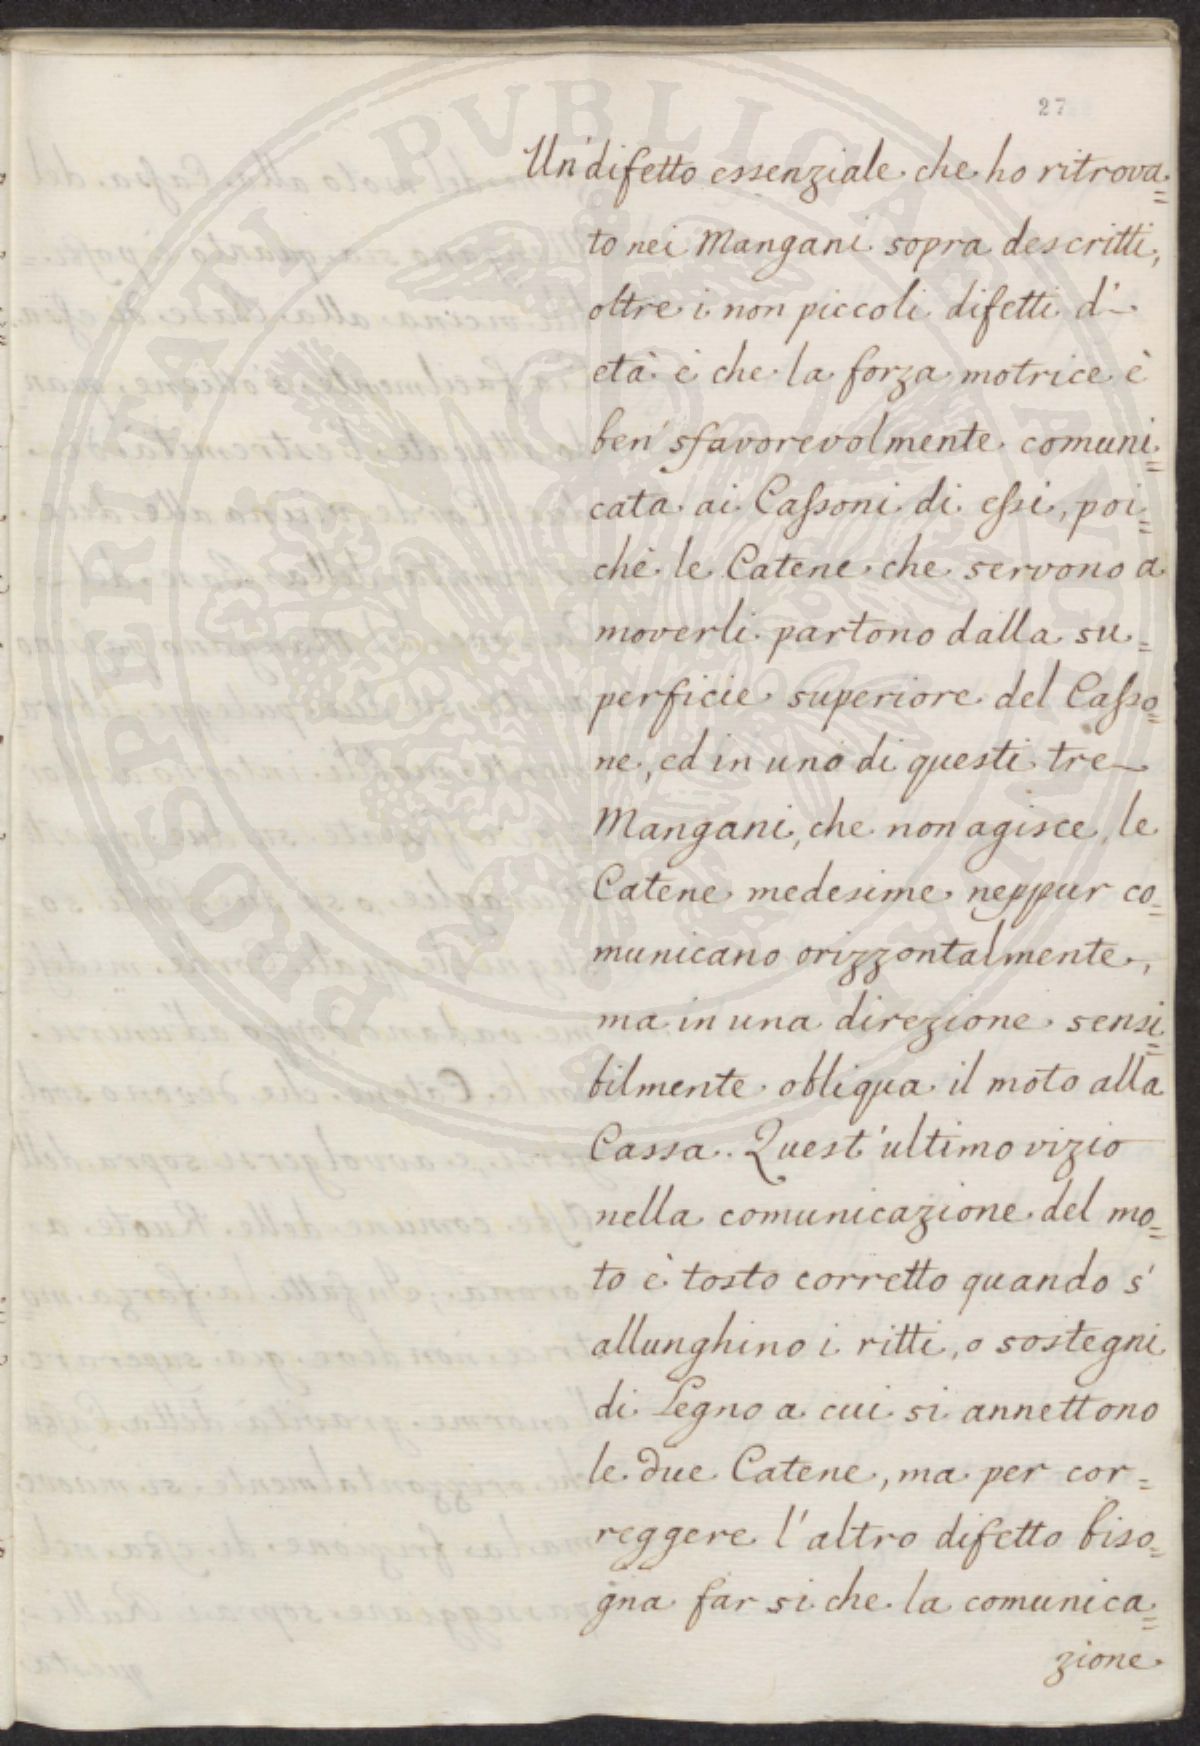 27
Un' difetto essenziale che ho ritrova=
to nei Mangani sopra descritti,
oltre i non piccoli difetti d'
età è che la forza motrice è
ben' sfavorevolmente comuni=
cata ai Cassoni di essi, poi=
chè le Catene che servono a
moverli partono dalla su=
perficie superiore del Casso=
ne, ed in uno di questi tre
Mangani, che non agisce, le
Catene medesime neppur co=
municano orizzontalmente,
ma in una direzione sensi=
bilmente obliqua il moto alla
Cassa. Quest'ultimo vizio
nella comunicazione del mo=
to è tosto corretto quando s'
allunghino i ritti, o sostegni
di Legno a cui si annettono
le due Catene, ma per cor=
reggere l'altro difetto biso=
gna far si che la comunica=
zione
PROSPERITATI PUBLICAE